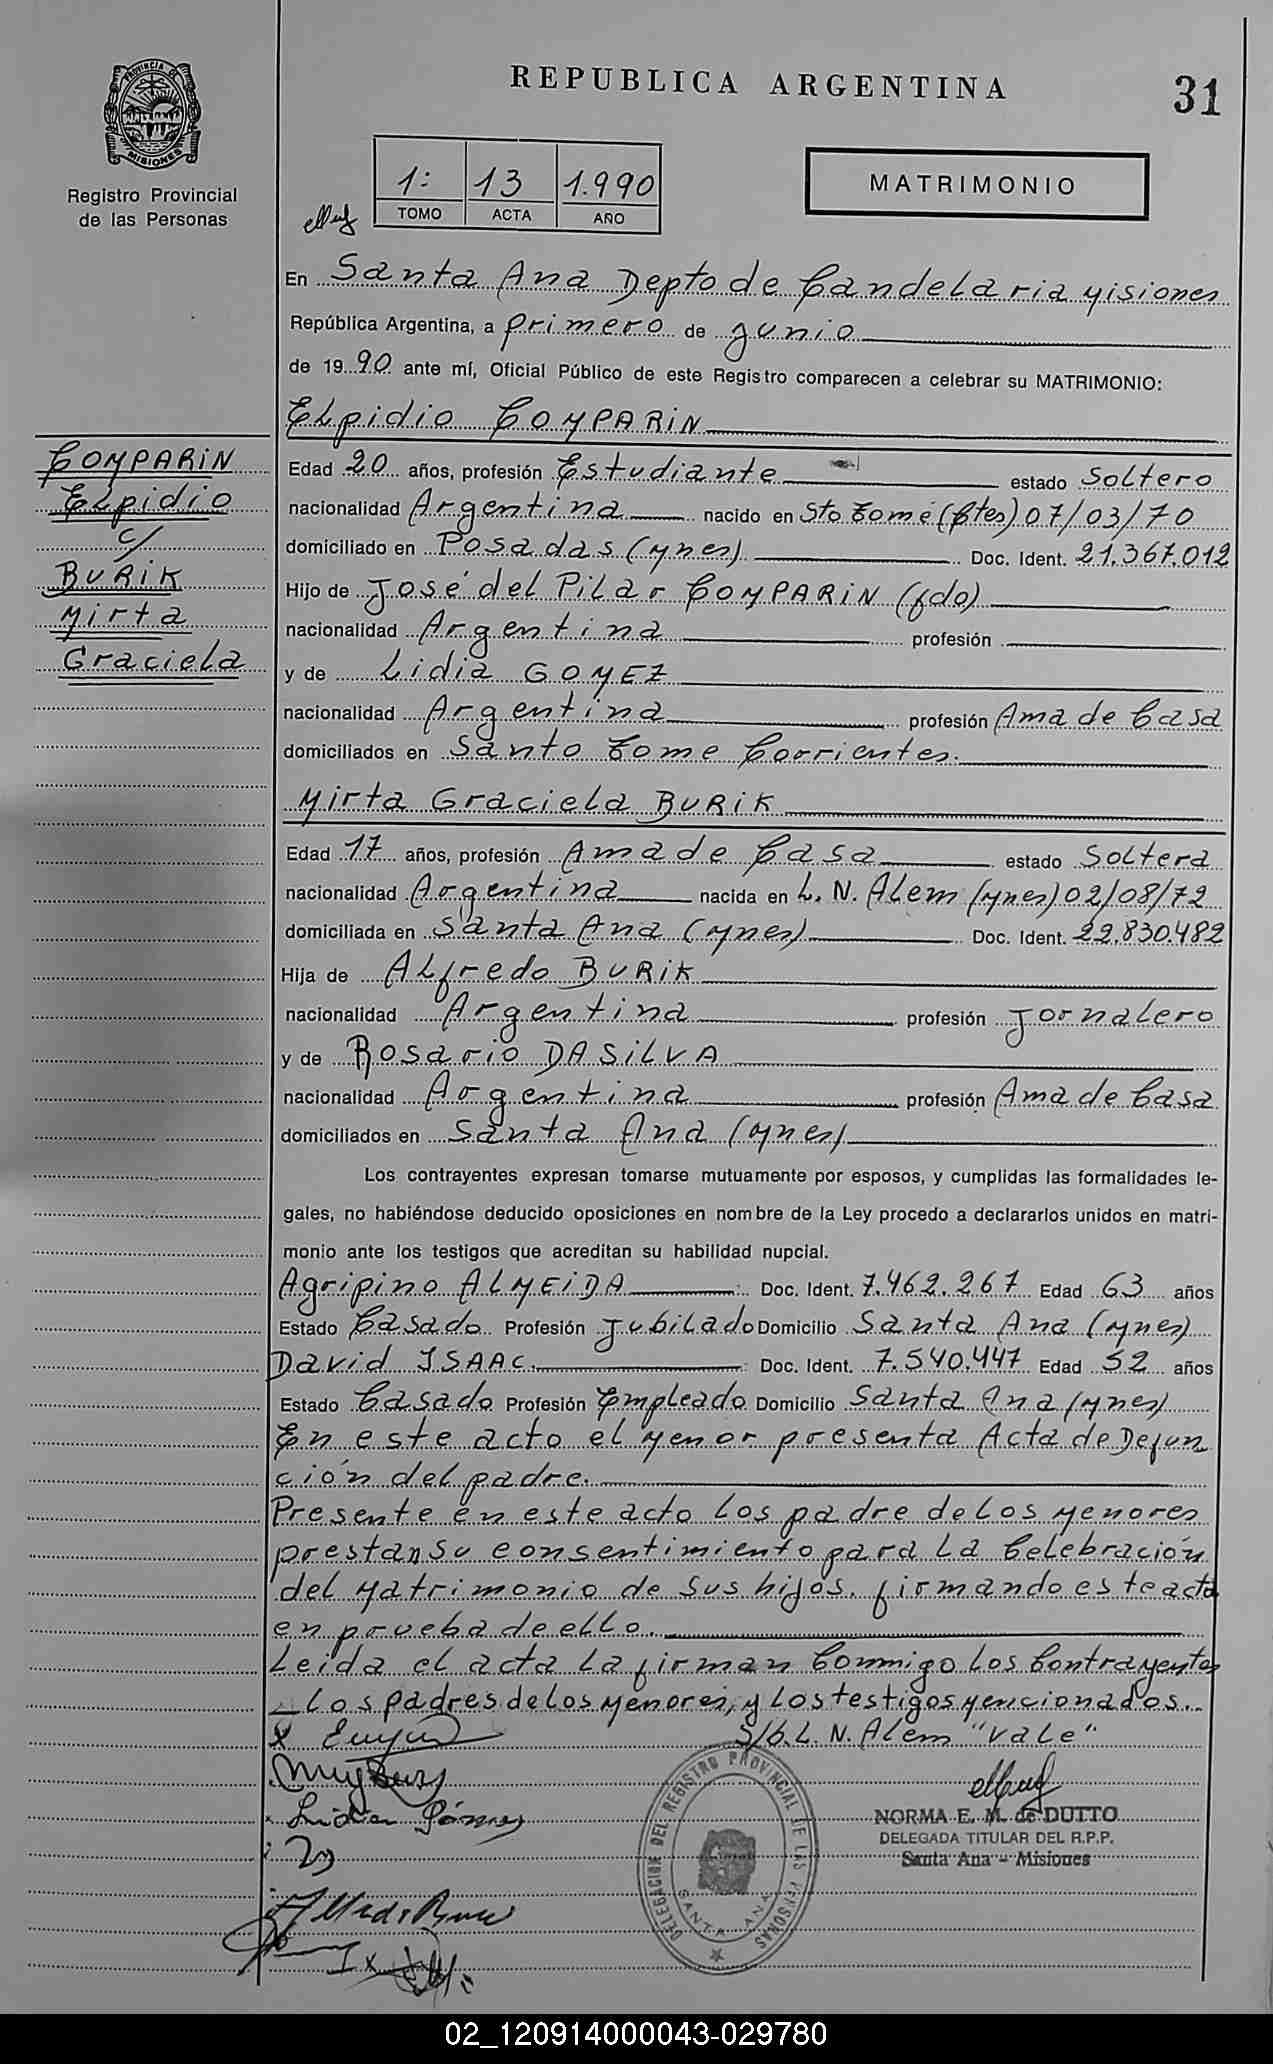 REPUBLICA ARGENTINA
31
PROVINCIA DE MISIONES
Registro Provincial
de las Personas
1: 13 1.990
TOMO ACTA AÑO
MATRIMONIO
En Santa Ana Depto de Candelaria Misiones
República Argentina, a primero de junio
de 1990 ante mí, Oficial Público de este Registro comparecen a celebrar su MATRIMONIO:
Elpidio COMPARIN
COMPARIN
Elpidio
c/
BURIK
Mirta
Graciela
Edad 20 años, profesión Estudiante estado Soltero
nacionalidad Argentina nacido en Sto Tomé (Ctes) 07/03/70
domiciliado en Posadas (Mnes) Doc. Ident. 21.367.012
Hijo de José del Pilar COMPARIN (fdo)
nacionalidad Argentina profesión
y de Lidia GOMEZ
nacionalidad Argentina profesión Ama de Casa
domiciliados en Santo Tome Corrientes.
Mirta Graciela BURIK
Edad 17 años, profesión Ama de Casa estado Soltera
nacionalidad Argentina nacida en L. N. Alem (Mnes) 02/08/72
domiciliada en Santa Ana (Mnes) Doc. Ident. 22.830.482
Hija de Alfredo BURIK
nacionalidad Argentina profesión Jornalero
y de Rosario DASILVA
nacionalidad Argentina profesión Ama de Casa
domiciliados en Santa Ana (Mnes)
Los contrayentes expresan tomarse mutuamente por esposos, y cumplidas las formalidades le-
gales, no habiéndose deducido oposiciones en nombre de la Ley procedo a declararlos unidos en matri-
monio ante los testigos que acreditan su habilidad nupcial.
Agripino ALMEIDA Doc. Ident. 7.462.267 Edad 63 años
Estado Casado Profesión Jubilado Domicilio Santa Ana (Mnes)
David ISAAC. Doc. Ident. 7.540.447 Edad 52 años
Estado Casado Profesión Empleado Domicilio Santa Ana (Mnes)
En este acto el Menor presenta Acta de Defun
ción del padre.
Presente en este acto los padre de los Menores
prestan su consentimiento para la Celebración
del Matrimonio de sus hijos. firmando este acta
en prueba de ello.
Leida el acta la firman Conmigo los Contrayentes
los padres de los Menores, y los testigos Mencionados.
S/b. L. N. Alem "vale"
Lidia Gómez
DELEGACION DEL REGISTRO PROVINCIAL DE LAS PERSONAS
SANTA ANA
NORMA E. M. de DUTTO
DELEGADA TITULAR DEL R.P.P.
Santa Ana - Misiones
02_120914000043-029780